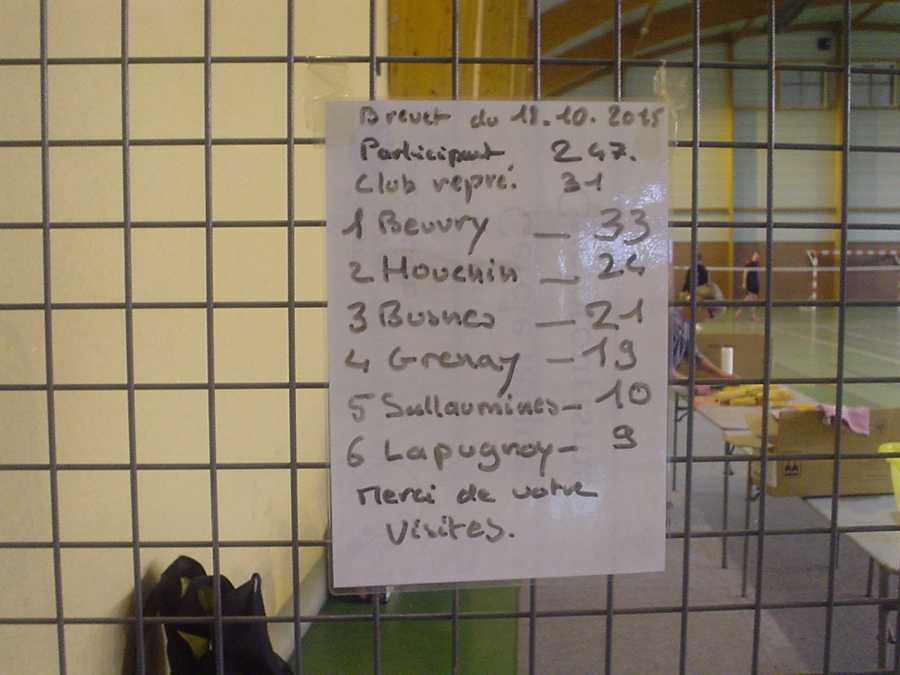 Brevet du 18.10.2015
Participant 247.
Club repré. 31
1 Beuvry — 33
2 Houchin — 24
3 Busnes — 21
4 Grenay — 19
5 Sallaumines — 10
6 Lapugnoy — 9
Merci de votre
Visites.